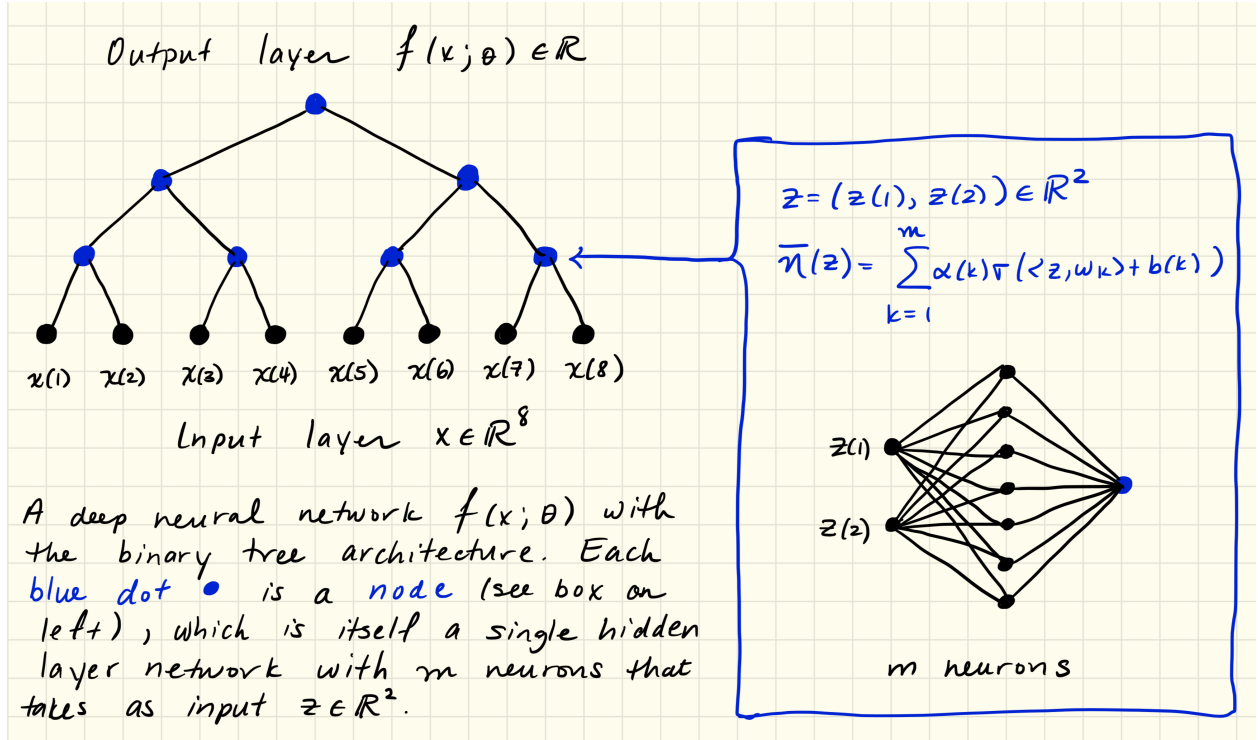 Output layer f(x; θ) ∈ ℝ
x(1) x(2) x(3) x(4) x(5) x(6) x(7) x(8)
Input layer x ∈ ℝ⁸
A deep neural network f(x; θ) with
the binary tree architecture. Each
blue dot • is a node (see box on
left), which is itself a single hidden
layer network with m neurons that
takes as input z ∈ ℝ².
z = (z(1), z(2)) ∈ ℝ²
η̅(z) = ∑_{k=1}^{m} α(k)σ(<z, w_k> + b(k))
z(1)
z(2)
m neurons